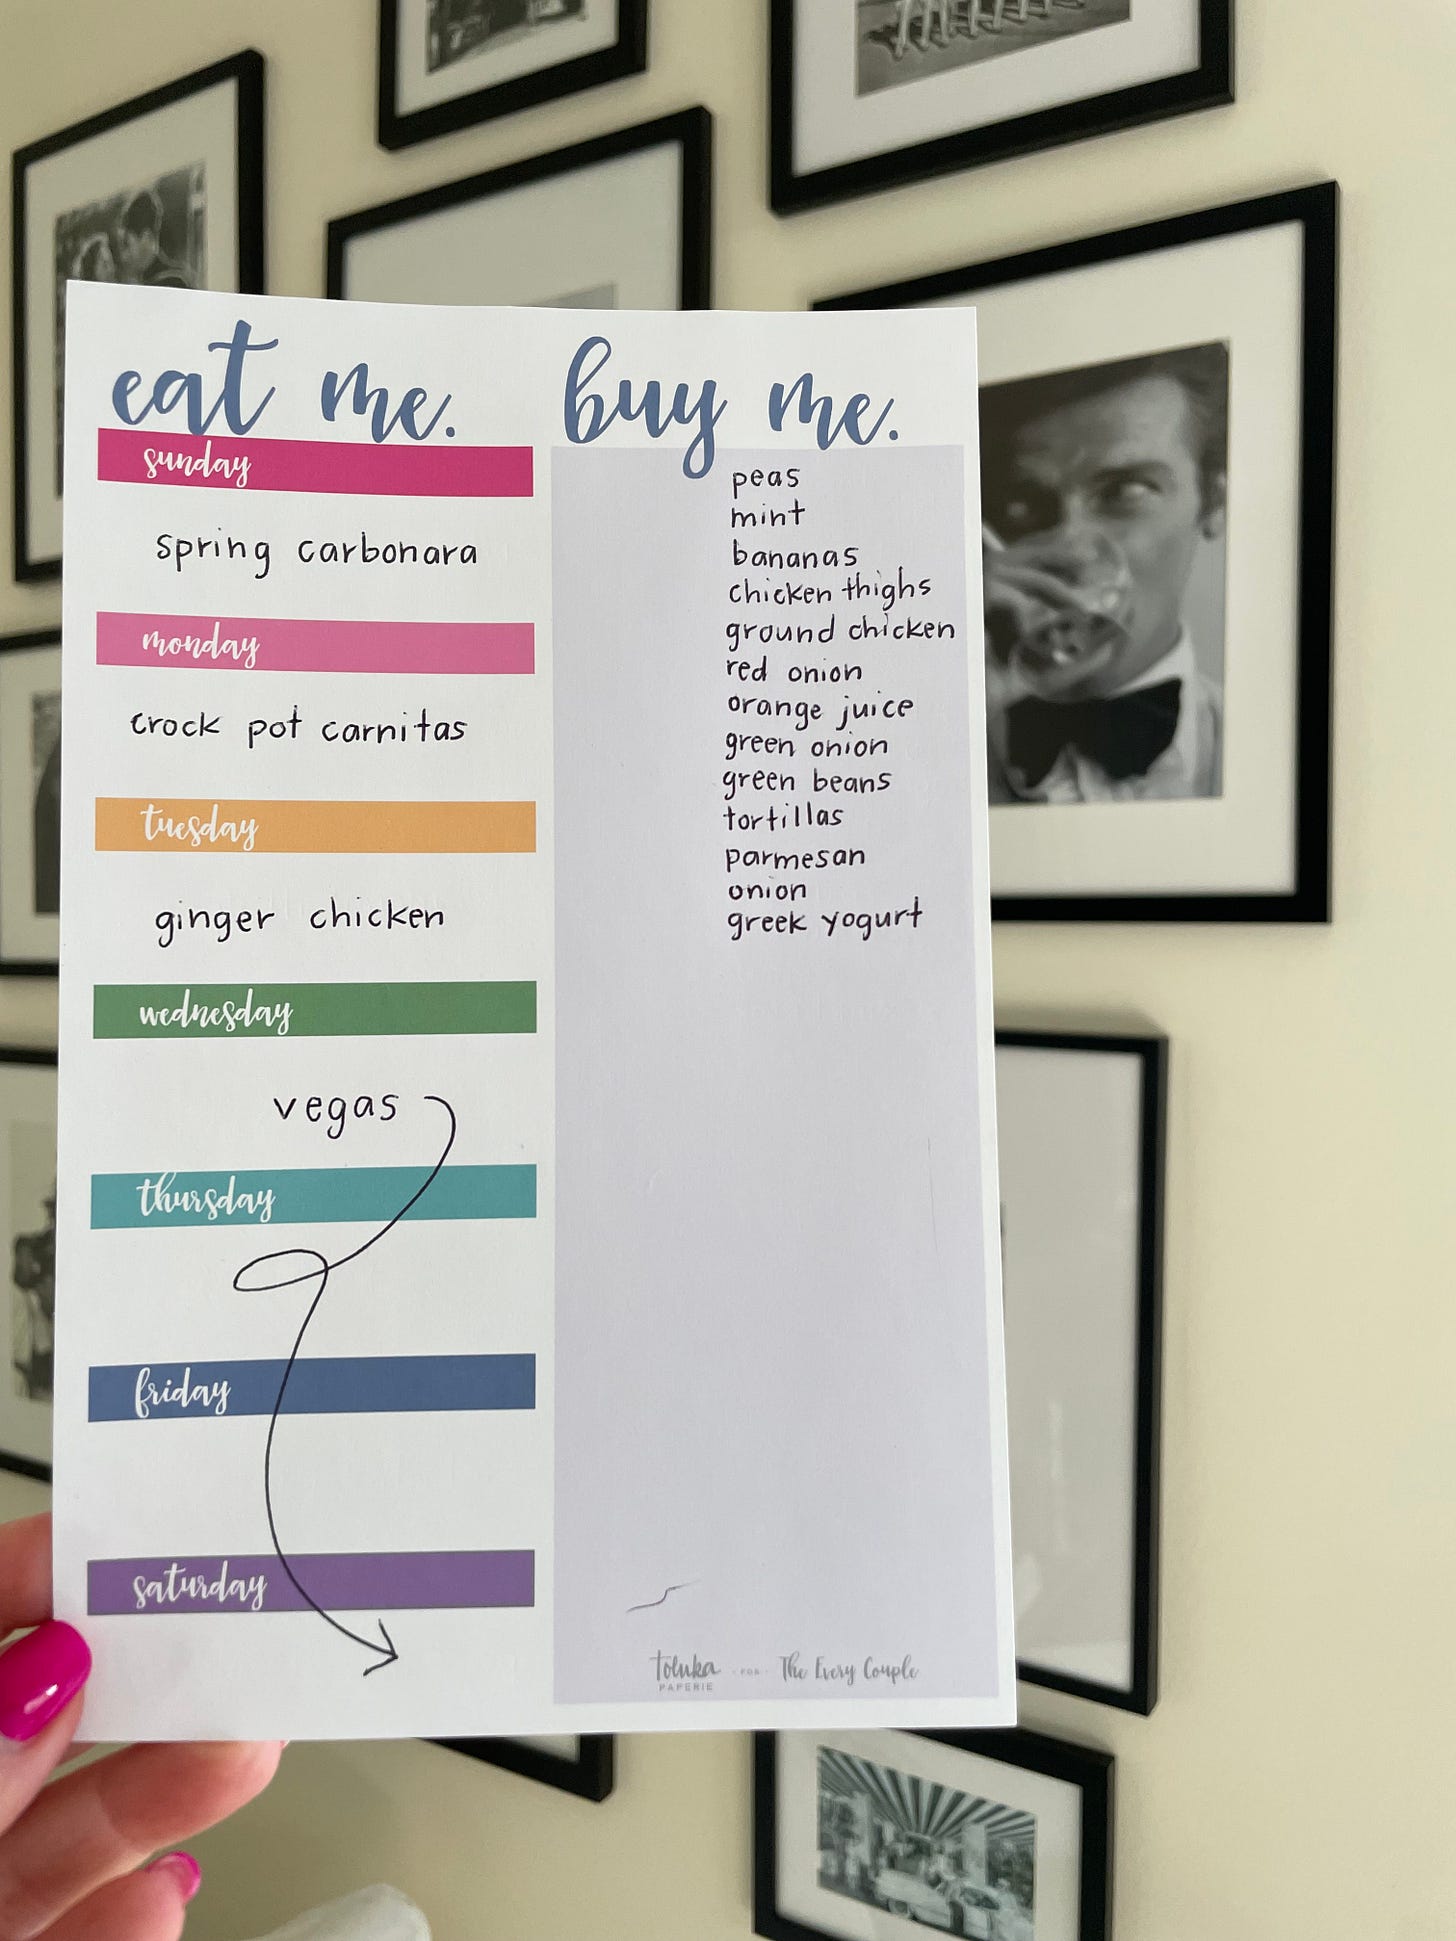 eat me.
sunday
spring carbonara
monday
crock pot carnitas
tuesday
ginger chicken
wednesday
vegas
thursday
friday
saturday
buy me.
peas
mint
bananas
chicken thighs
ground chicken
red onion
orange juice
green onion
green beans
tortillas
parmesan
onion
greek yogurt
toluka PAPERIE - FOR - The Every Couple